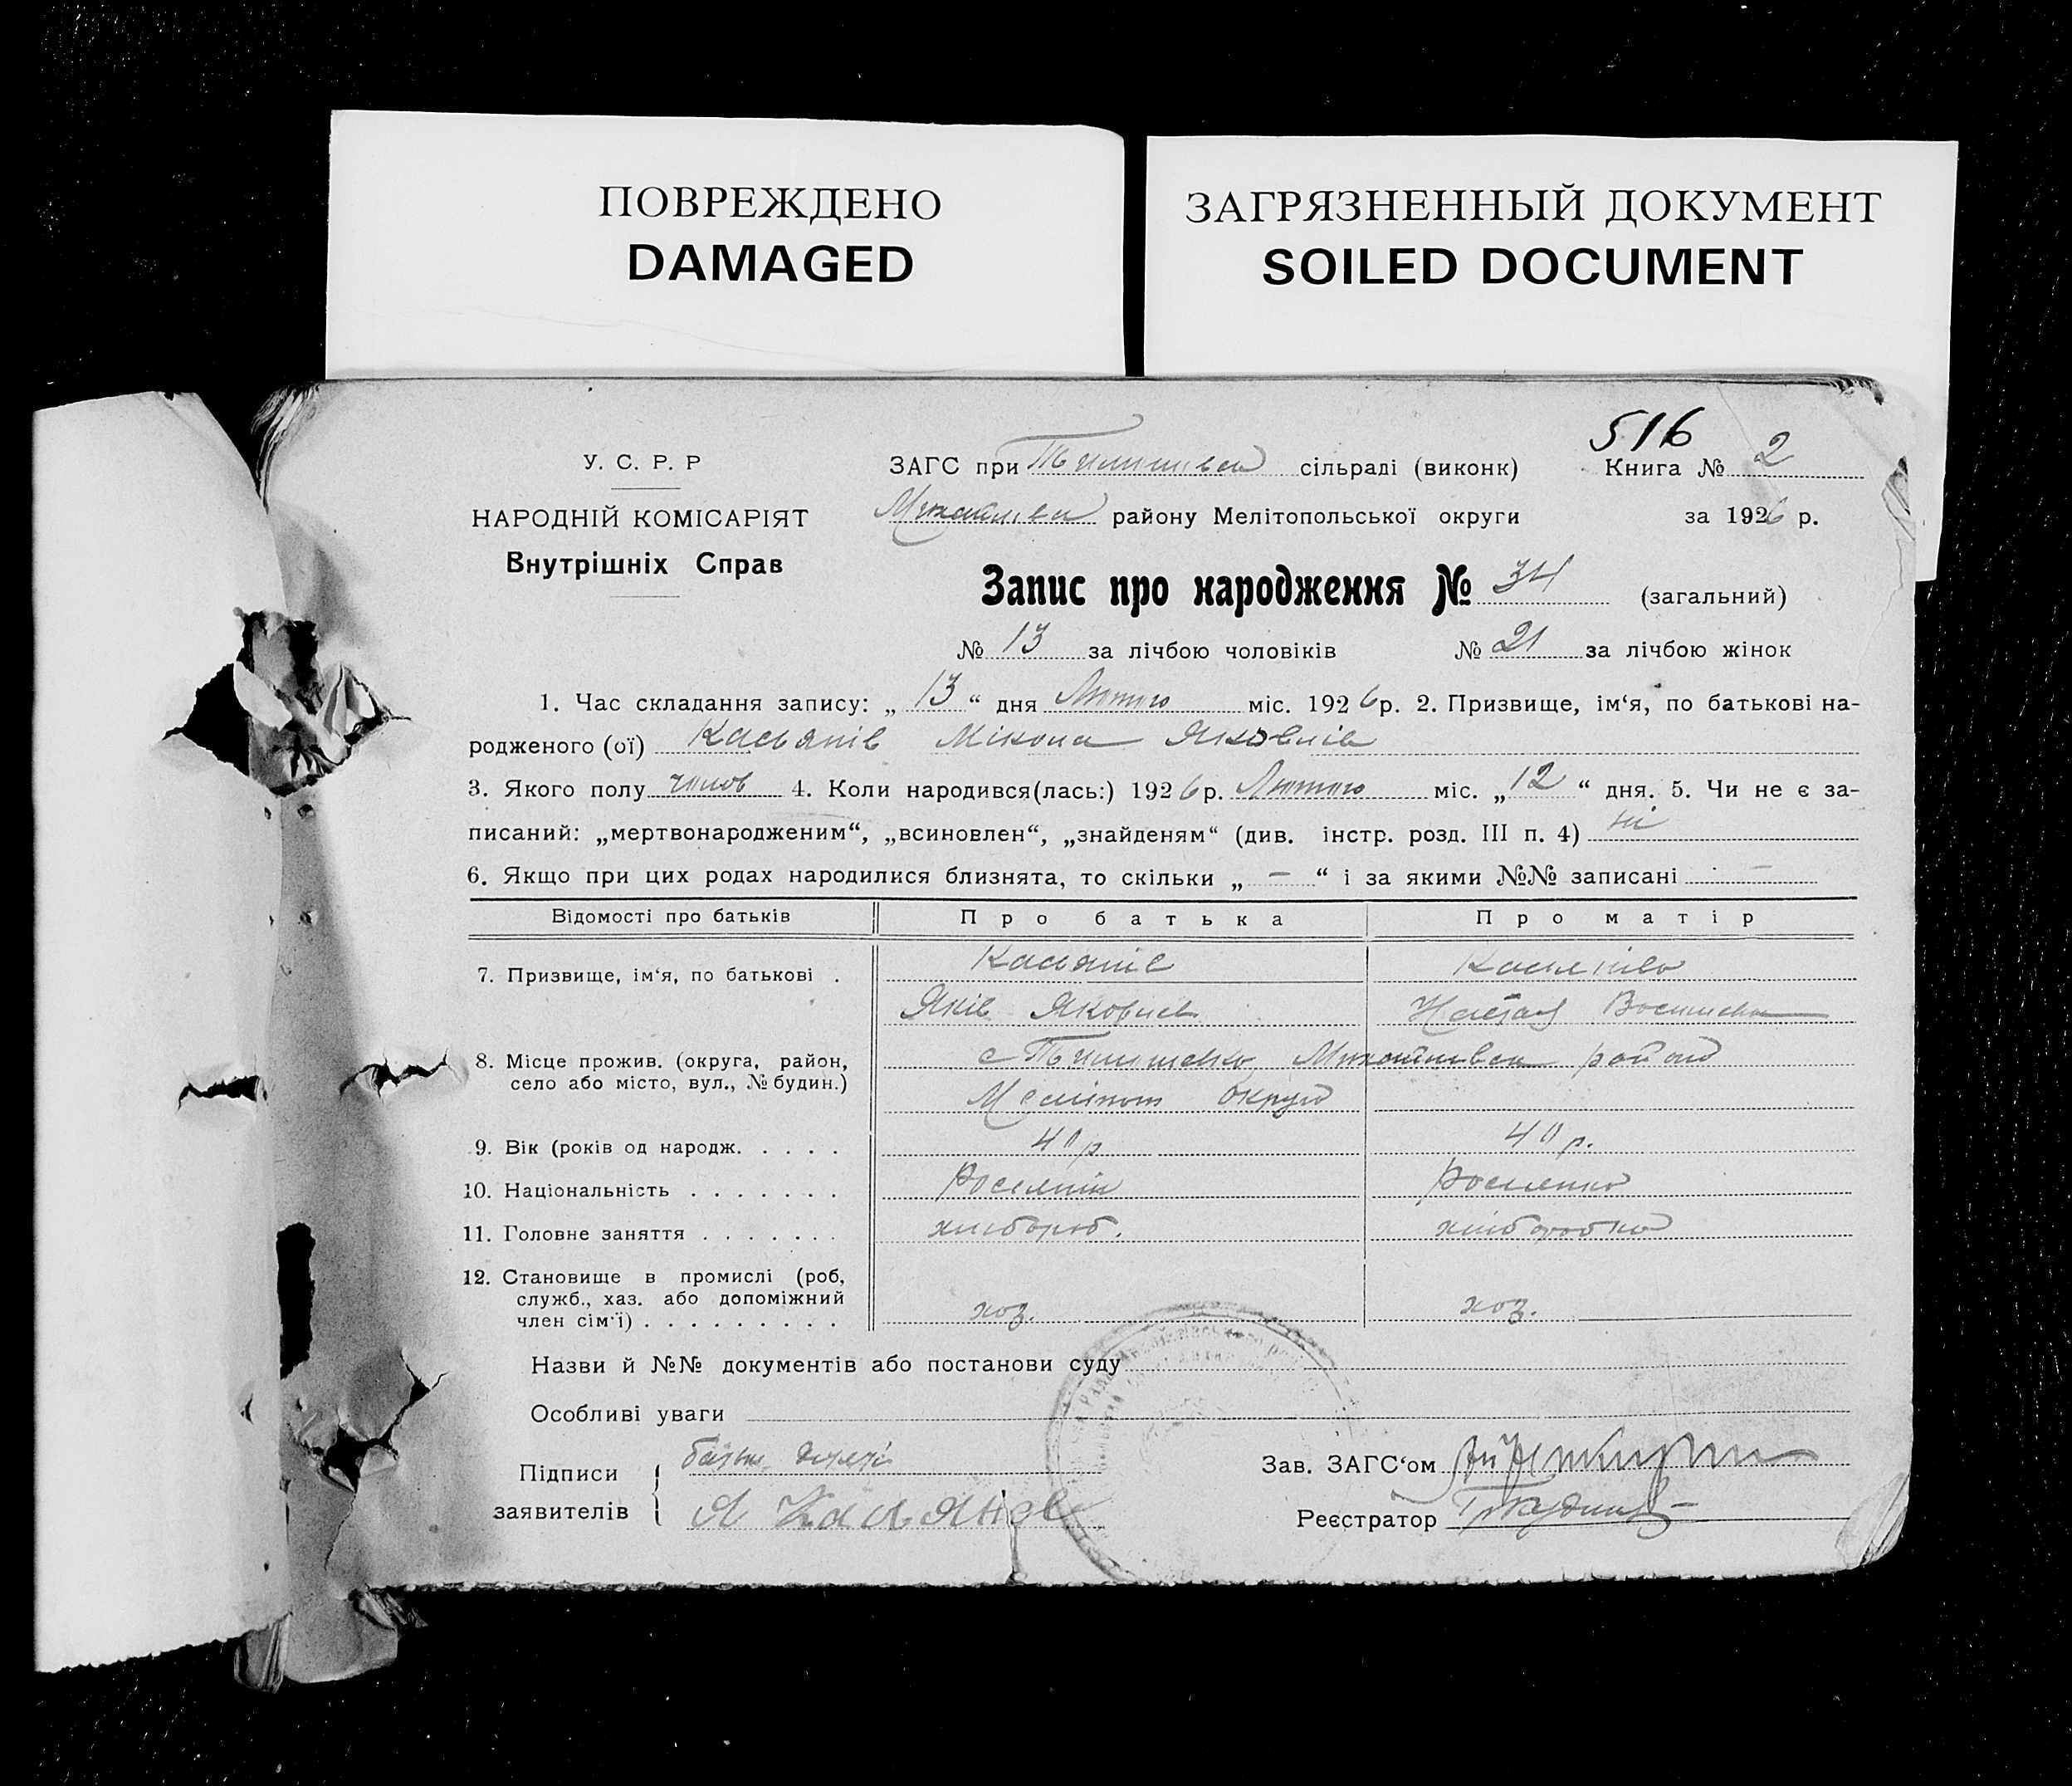 ПОВРЕЖДЕНО
DAMAGED
ЗАГРЯЗНЕННЫЙ ДОКУМЕНТ
SOILED DOCUMENT
516
У. С. Р. Р
ЗАГС при сільраді (виконк)
Книга № 2
НАРОДНІЙ КОМІСАРІЯТ
району Мелітопольської округи
за 1926 р.
Внутрішніх Справ
Запис про народження № 34 (загальний)
№ 13 за лічбою чоловіків № 21 за лічбою жінок
1. Час складання запису: „ 13 “ дня Лютого міс. 1926 р. 2. Призвище, ім‘я, по батькові на-
родженого (ої) Касьянів Мікола Яковлів
3. Якого полу чолов 4. Коли народився(лась:) 1926 р. Лютого міс. „ 12 “ дня. 5. Чи не є за-
писаний: „мертвонародженим“, „всиновлен“, „знайденям“ (див. інстр. розд. III п. 4) ні
6. Якщо при цих родах народилися близнята, то скільки „ – “ і за якими №№ записані –
Відомості про батьків
Про батька
Про матір
7. Призвище, ім‘я, по батькові .
Касьянів
Касянів
Яків Яковлев
8. Місце прожив. (округа, район,
село або місто, вул., № будин.)
с район
Меліноп округи
9. Вік (років од народж. . . . .
40 р
40 р.
10. Національність . . . . . . .
Росіянін
Росіянка
11. Головне заняття . . . . . . .
хлібороб.
хліборобка
12. Становище в промислі (роб,
служб., хаз. або допоміжний
член сім‘ї) . . . . . . . . .
хоз.
хоз.
Назви й №№ документів або постанови суду
Особливі уваги
Підписи
заявителів
Я Касьянов
Зав. ЗАГС‘ом
Реєстратор